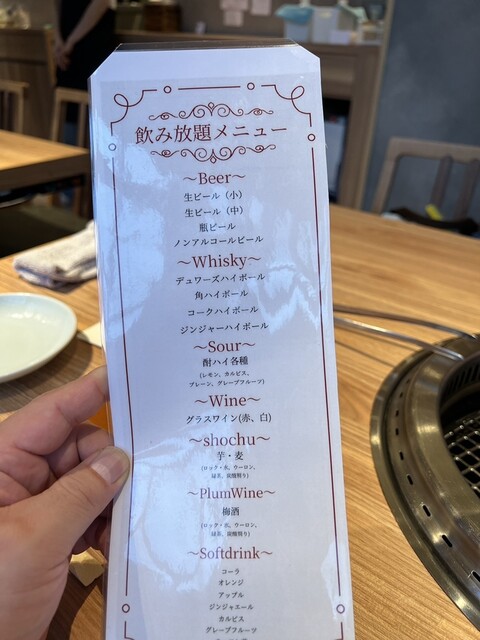 飲み放題メニュー
～Beer～
生ビール（小）
生ビール（中）
瓶ビール
ノンアルコールビール
～Whisky～
デュワーズハイボール
角ハイボール
コークハイボール
ジンジャーハイボール
～Sour～
酎ハイ各種
(レモン、カルピス、
プレーン、グレープフルーツ)
～Wine～
グラスワイン(赤、白)
～shochu～
芋・麦
(ロック・水、ウーロン、
緑茶、炭酸割り)
～PlumWine～
梅酒
(ロック・水、ウーロン、
緑茶、炭酸割り)
～Softdrink～
コーラ
オレンジ
アップル
ジンジャエール
カルピス
グレープフルーツ